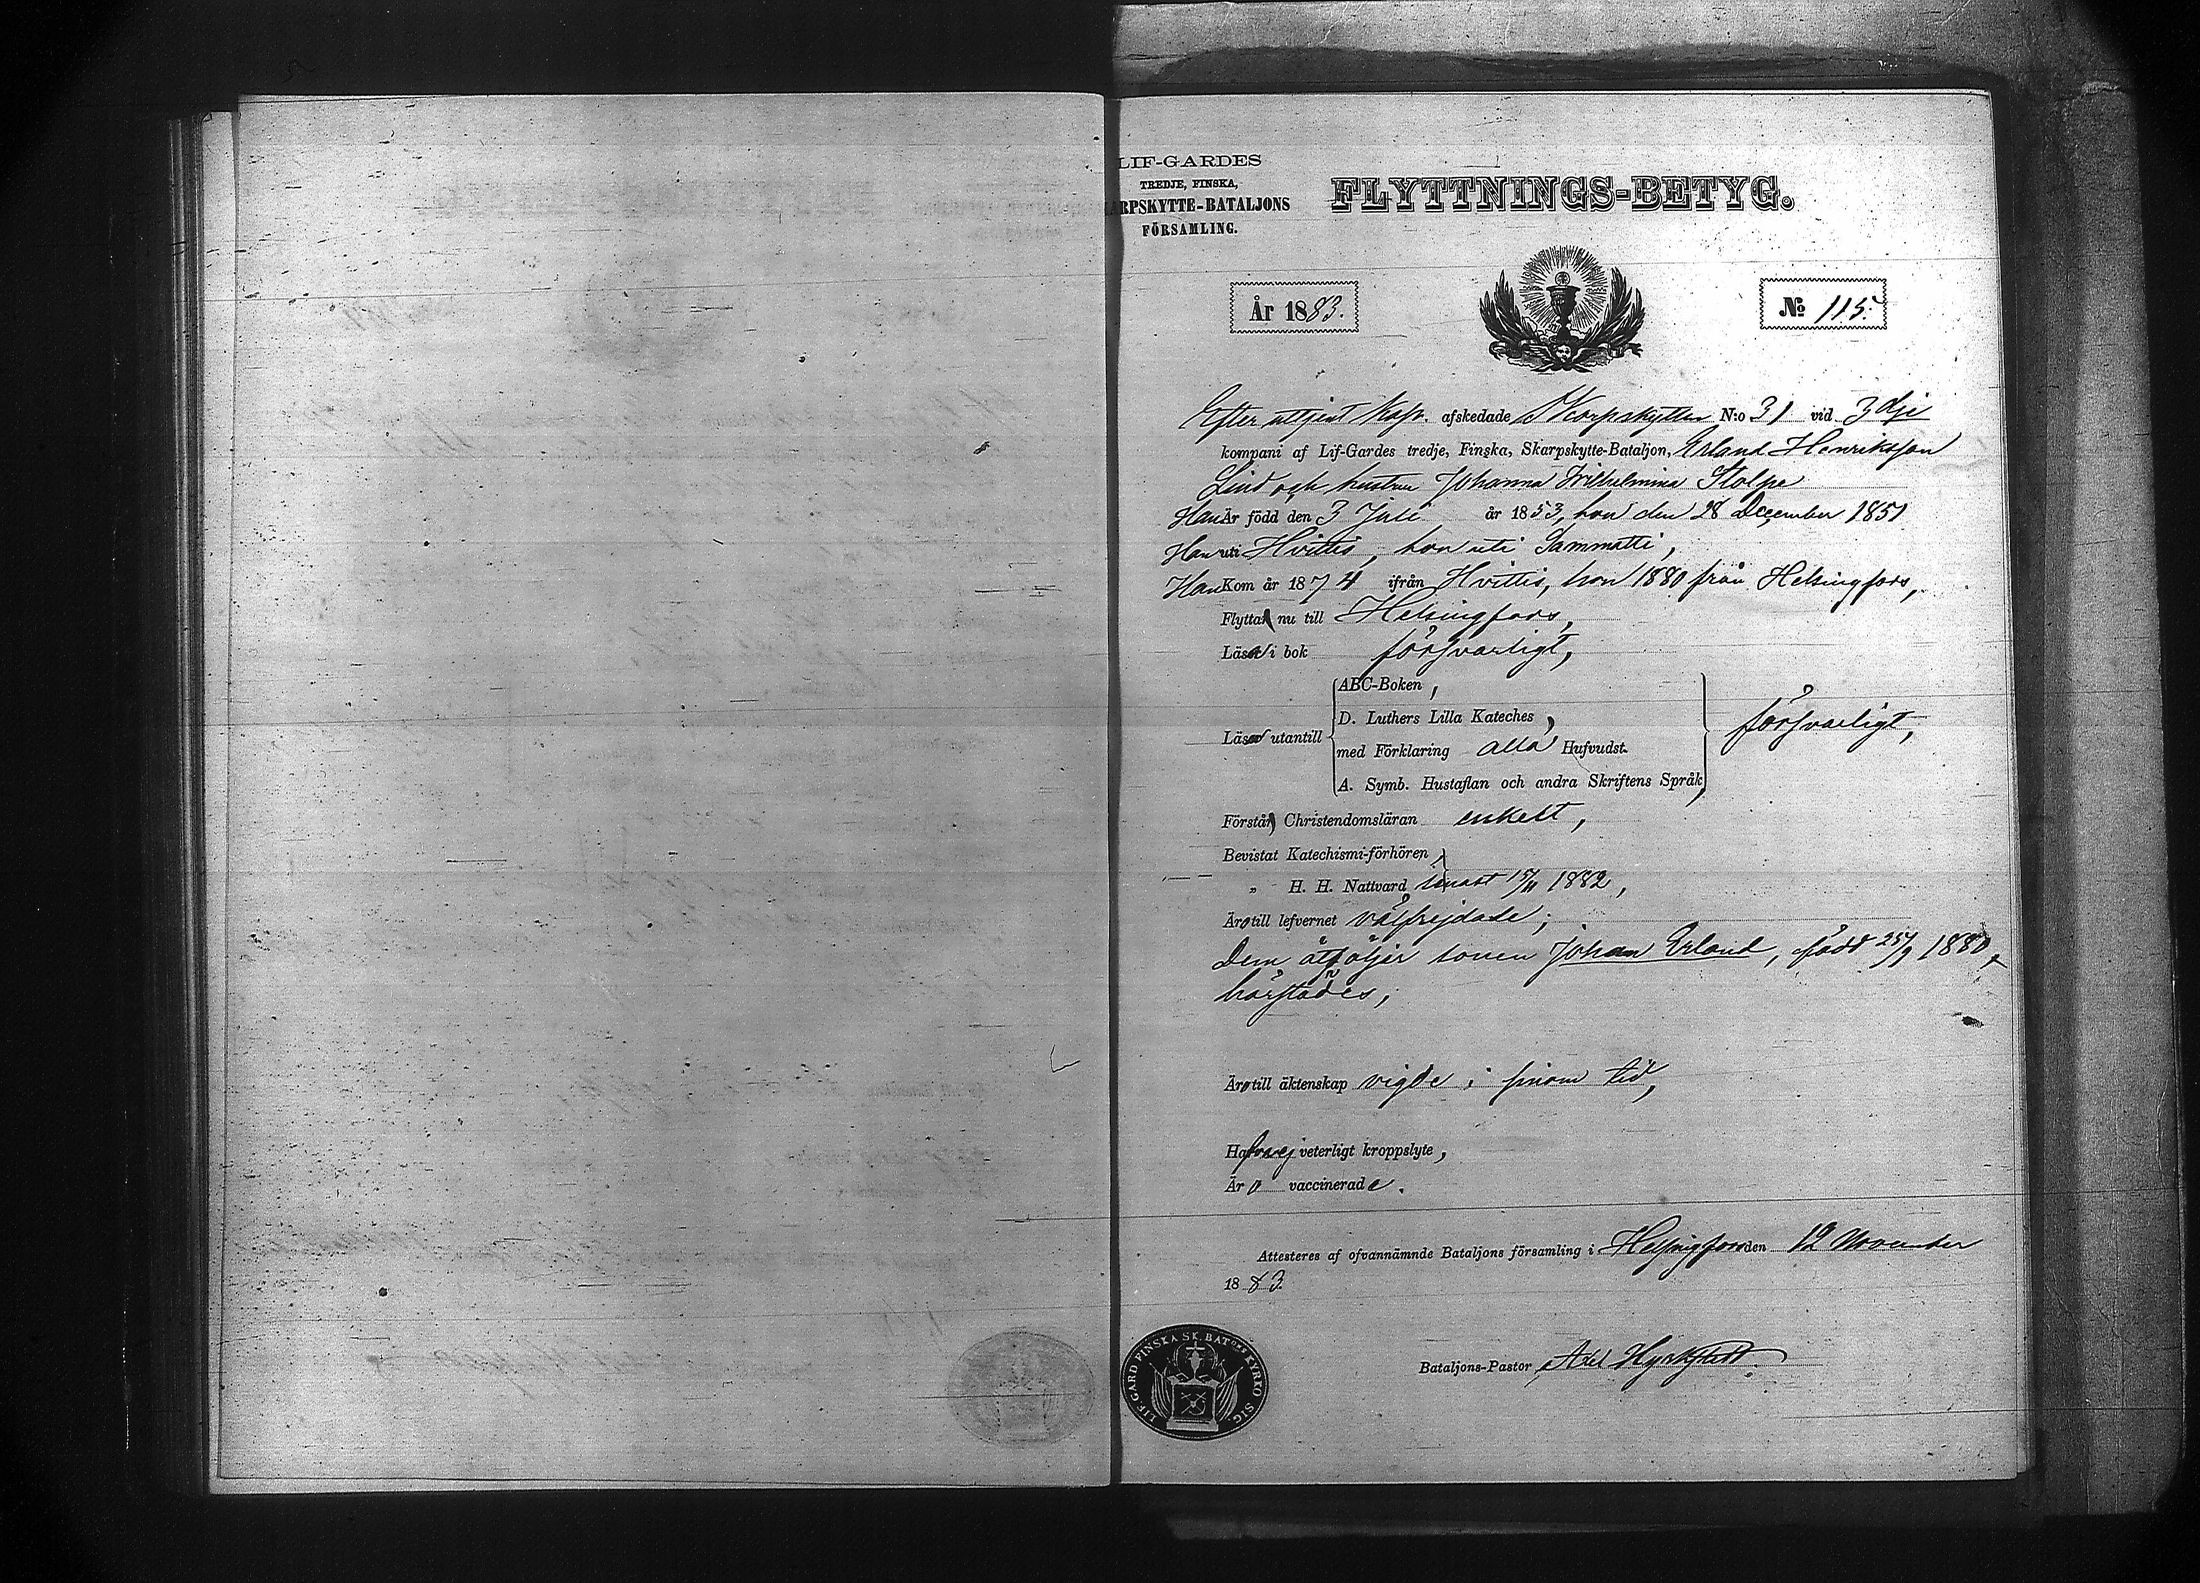 LIF-GARDES
TREDJE, FINSKA,
ARPSKYTTE-BATALJONS
FÖRSAMLING.
FLYTTNINGS-BETYG.
År 1883.
No 115.
Efter uttjent Kap. afskedade Skarpskytten N:o 31 vid 3dje
kompani af Lif-Gardes tredje, Finska, Skarpskytte-Bataljon, Erland Henriksson
Lind och hustru Johanna Wilhelmina Stolpe
Han Är född den 3 Juli år 1853, hon den 28 December 1851
Han uti Hvittis, hon uti Sammatti,
Han Kom år 1874 ifrån Hvittis, hon 1880 från Helsingfors,
Flytta nu till Helsingfors,
Läsa i bok försvarligt,
ABC-Boken,
D. Luthers Lilla Kateches,
Läsa utantill
med Förklaring alla Hufvudst.
försvarligt,
A. Symb. Hustaflan och andra Skriftens Språk,
Förstå Christendomsläran enkelt,
Bevistat Katechismi-förhören
„ H. H. Nattvard senast 15/11 1882,
Äro till lefvernet välfrejdade;
Dem åtföljer sonen Johan Erland, född 25/9 1880,
härstädes;
Äro till äktenskap vigde i sinom tid,
Hafva ej veterligt kroppslyte,
Äro vaccinerade.
Attesteres af ofvannämnde Bataljons församling i Helsingfors den 12 November
1883.
Bataljons-Pastor Axel
LIF-GARD FINSKA SK. BATONS KYRKO SIG.